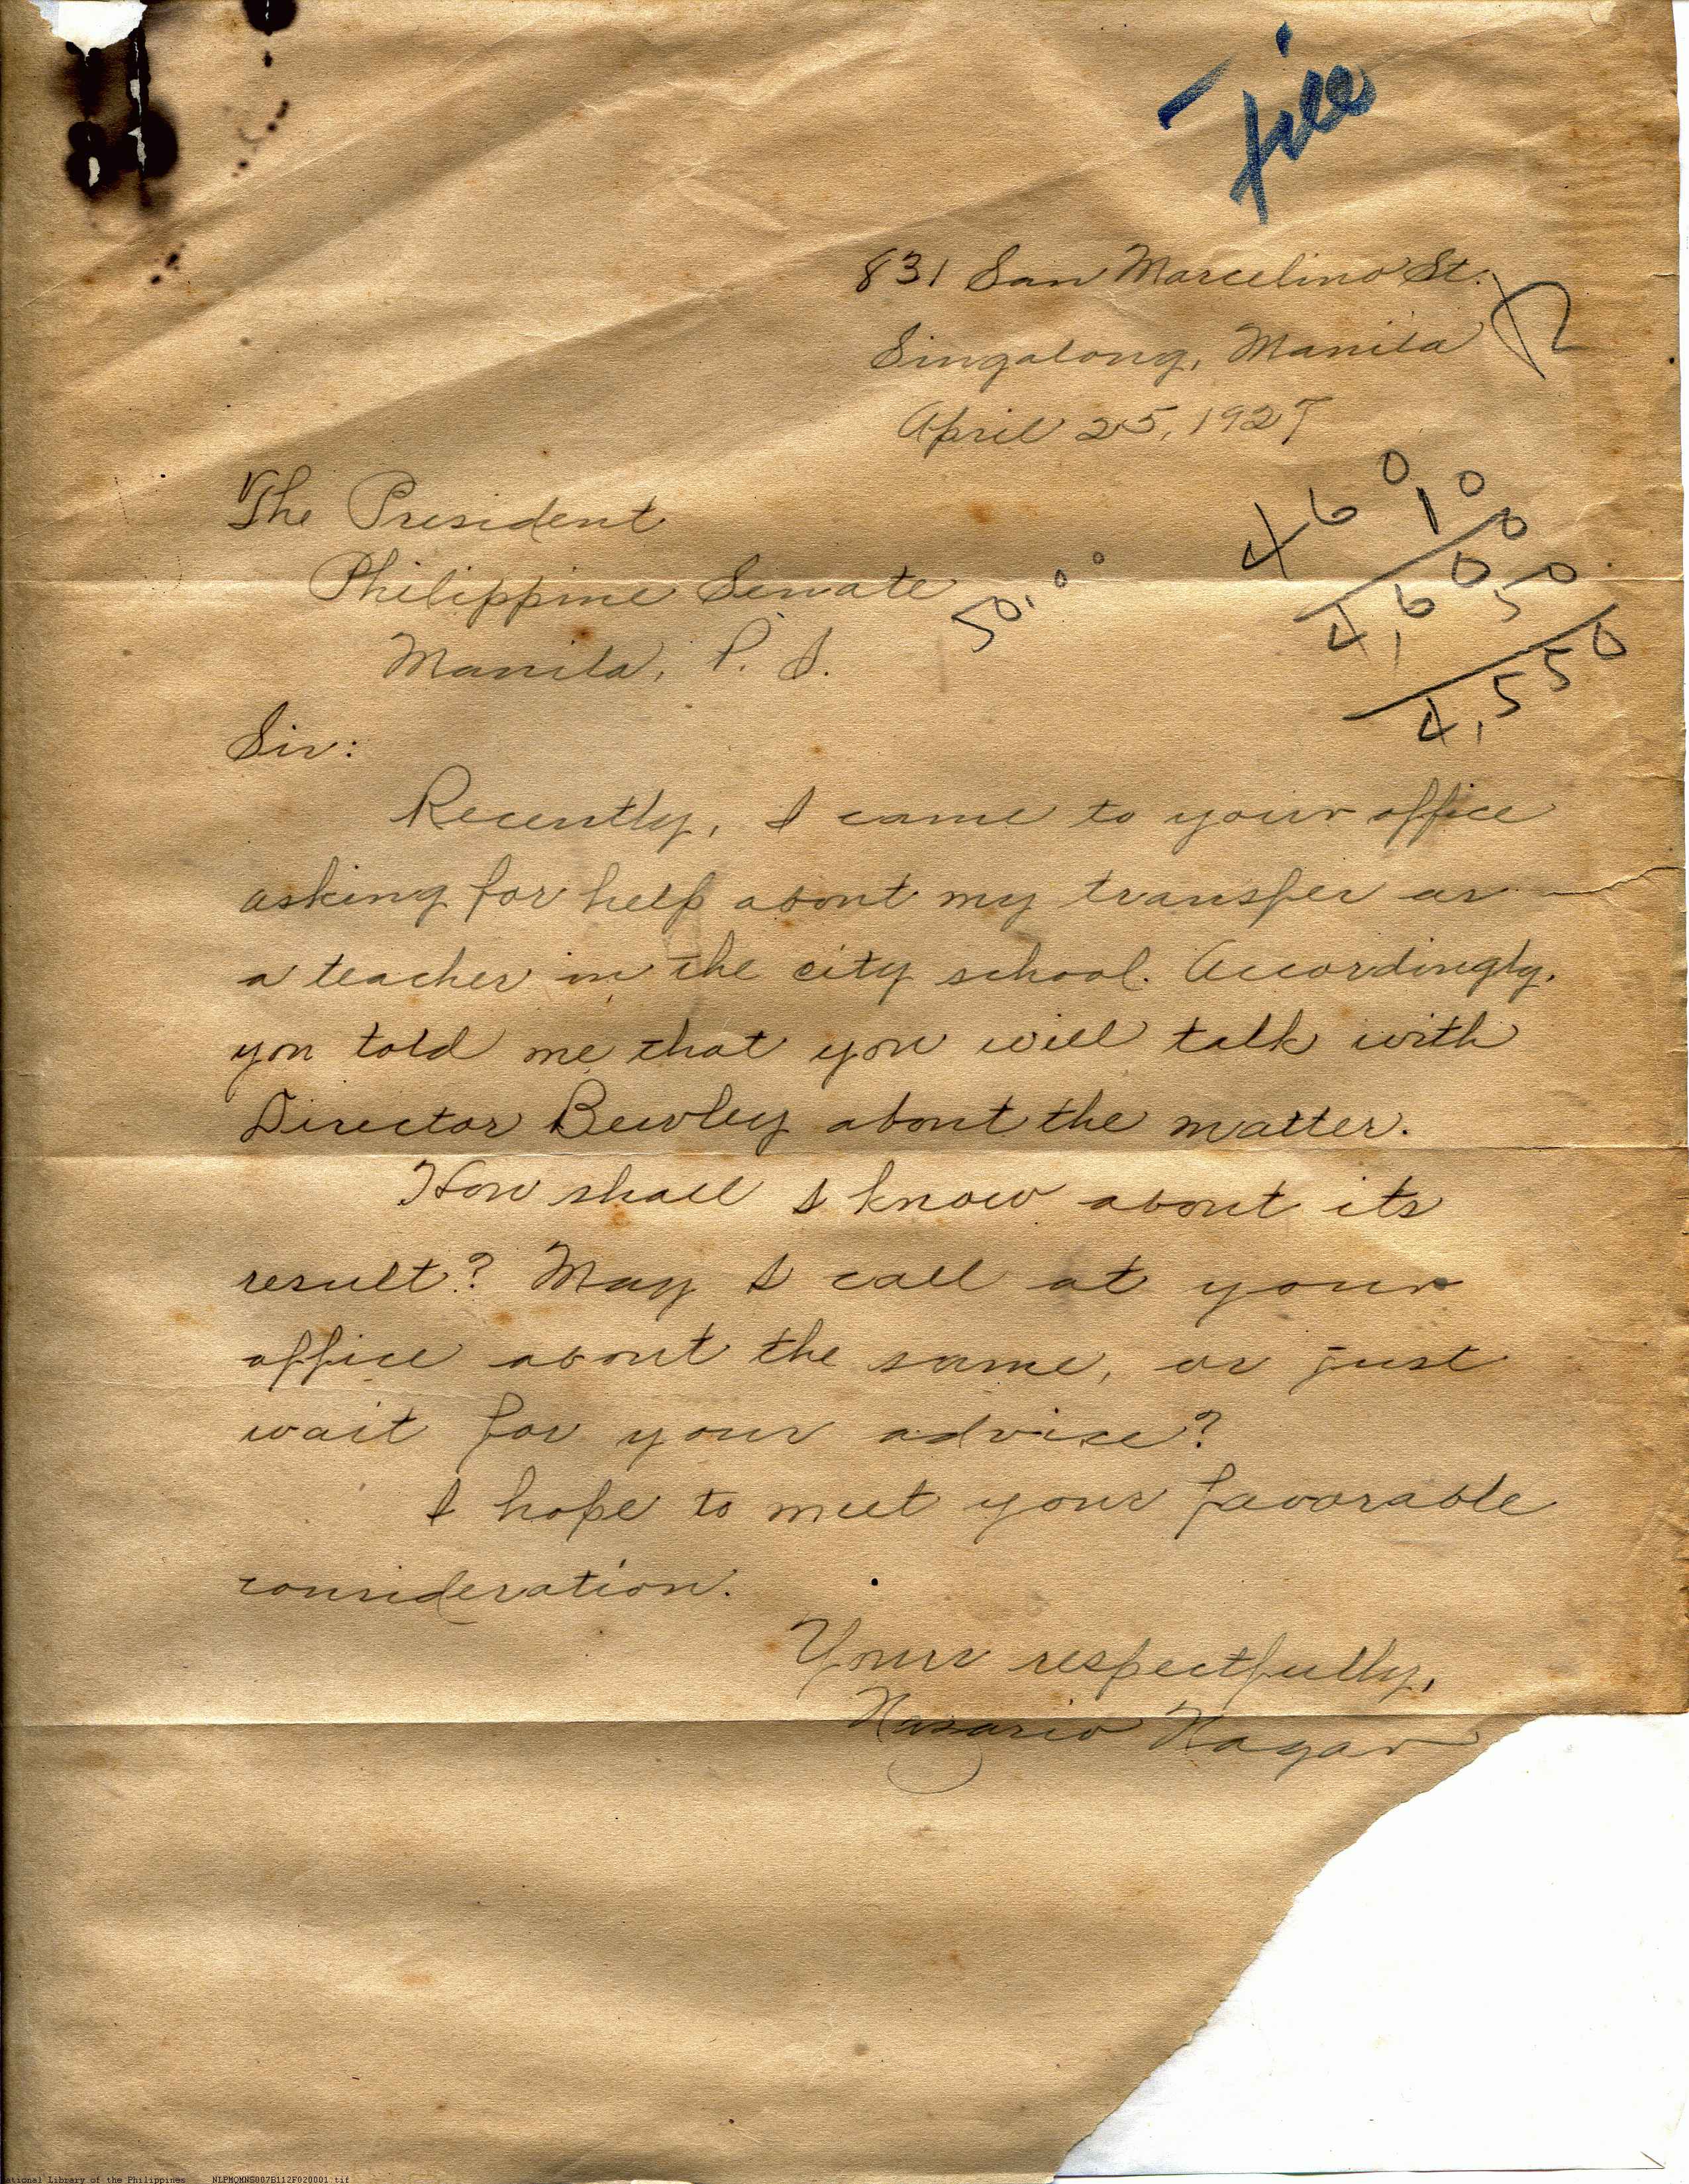 File
831 San Marcelino St.
Singalong, Manila
April 25, 1927
The President
Philippine Senate
Manila, P. I.
50.00
460
10
4,600
50
4,550
Sir:
Recently, I came to your office
asking for help about my transfer as
a teacher in the city school. Accordingly,
you told me that you will talk with
Director Bewley about the matter.
How shall I know about its
result? May I call at your
office about the same, or just
wait for your advice?
I hope to meet your favorable
consideration.
Yours respectfully,
Nazario Nagar
ational Library of the Philippines NLPMQMNS007B112F020001.tif